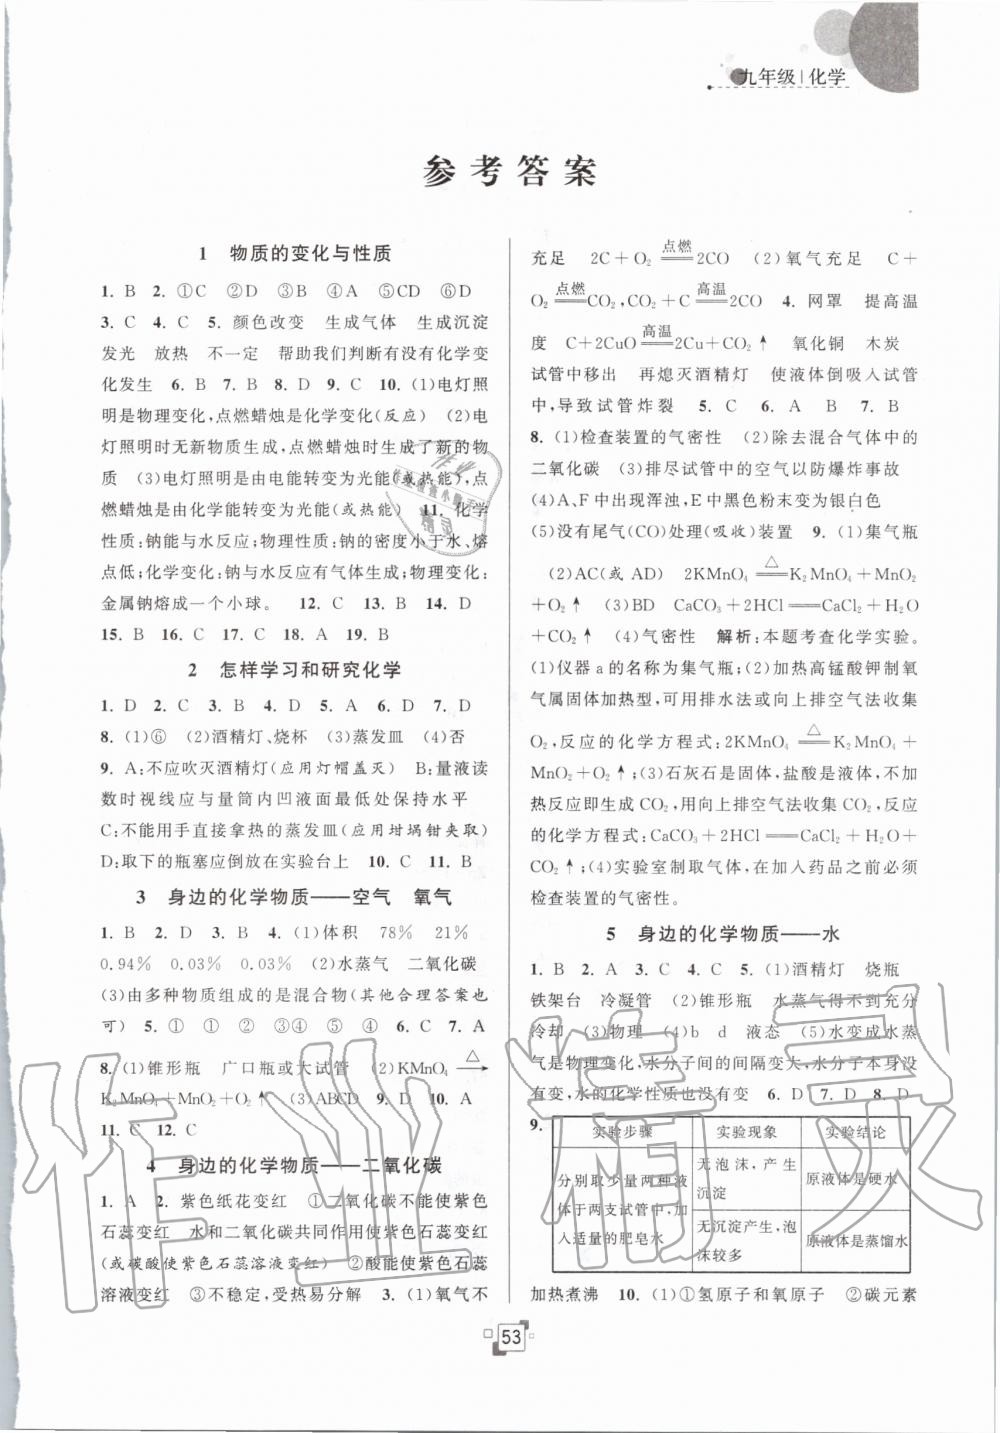 九年级|化学
参考答案
1 物质的变化与性质
1. B 2. ①C ②D ③B ④A ⑤CD ⑥D
3. C 4. C 5. 颜色改变 生成气体 生成沉淀
发光 放热 不一定 帮助我们判断有没有化学变
化发生 6. B 7. B 8. D 9. C 10. (1)电灯照
明是物理变化,点燃蜡烛是化学变化(反应) (2)电
灯照明时无新物质生成,点燃蜡烛时生成了新的物
质 (3)电灯照明是由电能转变为光能(或热能),点
燃蜡烛是由化学能转变为光能(或热能) 11. 化学
性质:钠能与水反应;物理性质:钠的密度小于水、熔
点低;化学变化:钠与水反应有气体生成;物理变化:
金属钠熔成一个小球。 12. C 13. B 14. D
15. B 16. C 17. C 18. A 19. B
2 怎样学习和研究化学
1. D 2. C 3. B 4. D 5. A 6. D 7. D
8. (1)⑥ (2)酒精灯、烧杯 (3)蒸发皿 (4)否
9. A:不应吹灭酒精灯(应用灯帽盖灭) B:量液读
数时视线应与量筒内凹液面最低处保持水平
C:不能用手直接拿热的蒸发皿(应用坩埚钳夹取)
D:取下的瓶塞应倒放在实验台上 10. C 11. B
3 身边的化学物质——空气 氧气
1. B 2. D 3. B 4. (1)体积 78% 21%
0.94% 0.03% 0.03% (2)水蒸气 二氧化碳
(3)由多种物质组成的是混合物(其他合理答案也
可) 5. ① ① ② ③ ④ ④ 6. C 7. A
8. (1)锥形瓶 广口瓶或大试管 (2)KMnO₄ —△→
K₂MnO₄+MnO₂+O₂↑ (3)ABCD 9. D 10. A
11. C 12. C
4 身边的化学物质——二氧化碳
1. A 2. 紫色纸花变红 ①二氧化碳不能使紫色
石蕊变红 水和二氧化碳共同作用使紫色石蕊变红
(或碳酸使紫色石蕊溶液变红) ②酸能使紫色石蕊
溶液变红 ③不稳定,受热易分解 3. (1)氧气不
充足 2C+O₂ ═点燃═ 2CO (2)氧气充足 C+
O₂ ═点燃═ CO₂,CO₂+C ═高温═ 2CO 4. 网罩 提高温
度 C+2CuO ═高温═ 2Cu+CO₂↑ 氧化铜 木炭
试管中移出 再熄灭酒精灯 使液体倒吸入试管
中,导致试管炸裂 5. C 6. A B 7. B
8. (1)检查装置的气密性 (2)除去混合气体中的
二氧化碳 (3)排尽试管中的空气以防爆炸事故
(4)A、F中出现浑浊,E中黑色粉末变为银白色
(5)没有尾气(CO)处理(吸收)装置 9. (1)集气瓶
(2)AC(或 AD) 2KMnO₄ ═△═ K₂MnO₄+MnO₂
+O₂↑ (3)BD CaCO₃+2HCl══CaCl₂+H₂O
+CO₂↑ (4)气密性 解析:本题考查化学实验。
(1)仪器a的名称为集气瓶;(2)加热高锰酸钾制氧
气属固体加热型,可用排水法或向上排空气法收集
O₂,反应的化学方程式:2KMnO₄ ═△═ K₂MnO₄+
MnO₂+O₂↑;(3)石灰石是固体,盐酸是液体,不加
热反应即生成CO₂,用向上排空气法收集CO₂,反应
的化学方程式:CaCO₃+2HCl══CaCl₂+H₂O+
CO₂↑;(4)实验室制取气体,在加入药品之前必须
检查装置的气密性。
5 身边的化学物质——水
1. B 2. A 3. C 4. C 5. (1)酒精灯 烧瓶
铁架台 冷凝管 (2)锥形瓶 水蒸气得不到充分
冷却 (3)物理 (4)b d 液态 (5)水变成水蒸
气是物理变化,水分子间的间隔变大,水分子本身没
有变,水的化学性质也没有变 6. D 7. D 8. D
9.
实验步骤 实验现象 实验结论
分别取少量两种液
体于两支试管中,加
入适量的肥皂水
无泡沫,产生
沉淀
原液体是硬水
无沉淀产生,泡
沫较多
原液体是蒸馏水
加热煮沸 10. (1)①氢原子和氧原子 ②碳元素
53
作业精灵